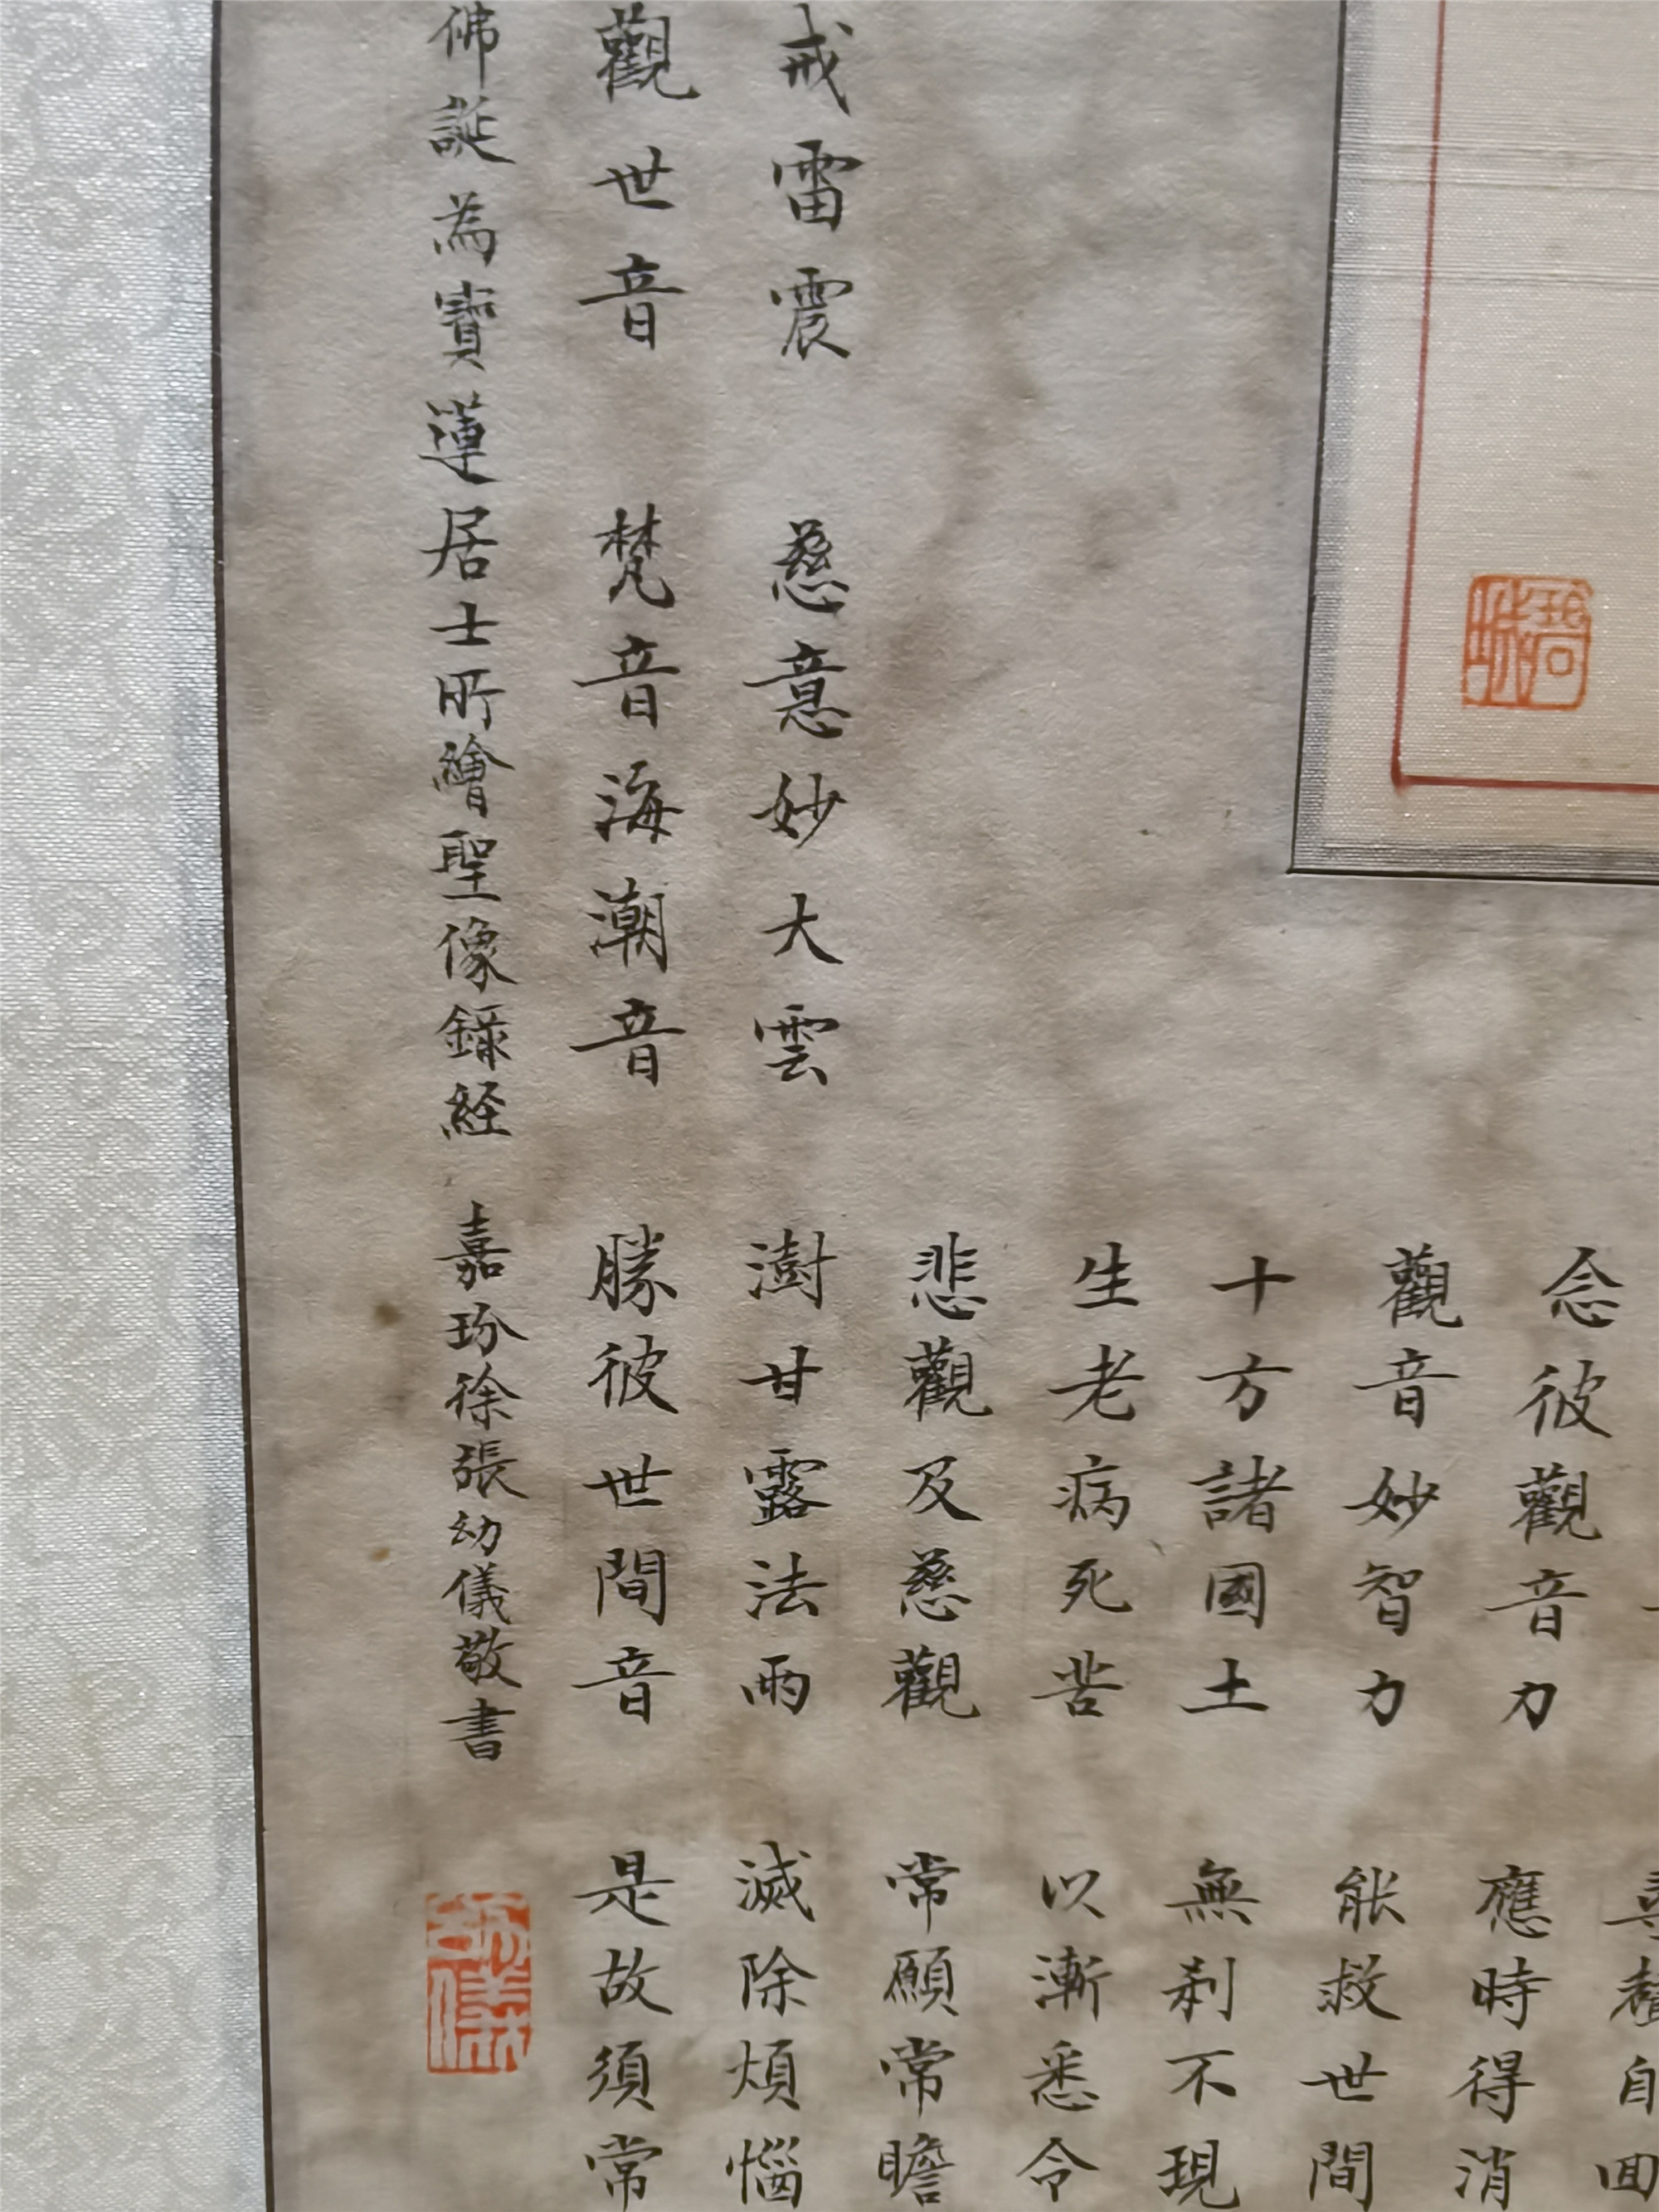 碧城
自回
念彼觀音力 應時得消
觀音妙智力 能救世間
十方諸國土 無刹不現
生老病死苦 以漸悉令
悲觀及慈觀 常願常瞻
戒雷震 慈意妙大雲 澍甘露法雨 滅除煩惱
觀世音 梵音海潮音 勝彼世間音 是故須常
佛誕為寶蓮居士所繪聖像錄經 嘉玢徐張幼儀敬書
幼儀